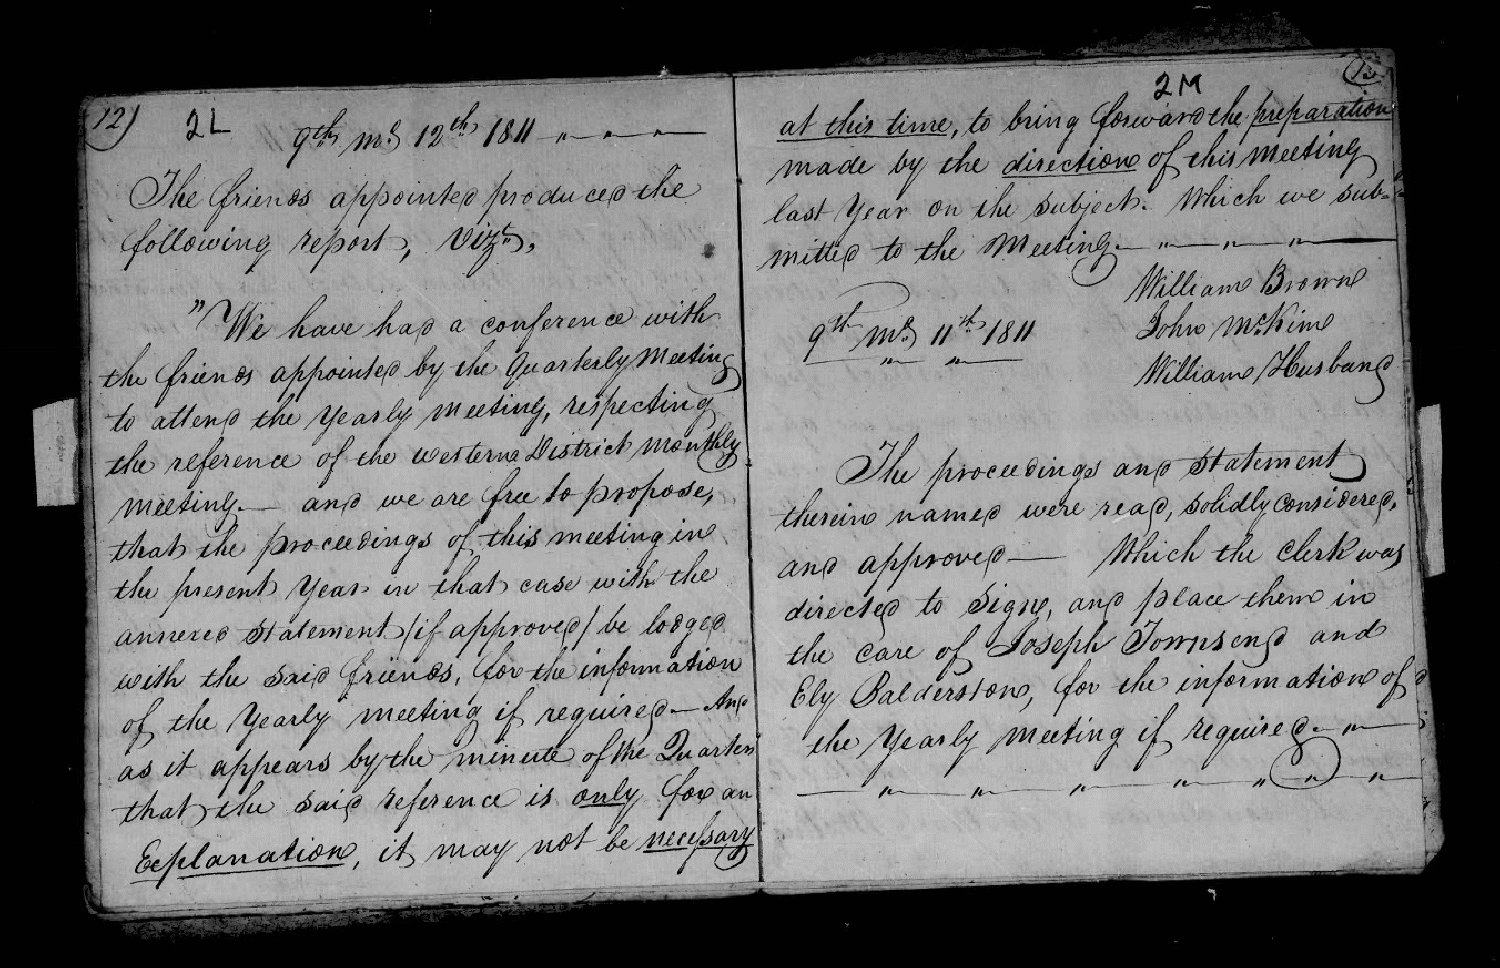 12)
2L
9th mo 12th 1811 — " — " — " —
The friends appointed produced the
following report, Vizt,
"We have had a conference with
the friends appointed by the Quarterly Meeting
to attend the Yearly Meeting, respecting
the reference of the Western District Monthly
Meeting.— and we are free to propose,
that the proceedings of this meeting in
the present Year in that case with the
annexed Statement /if approved/ be lodged
with the said friends, for the information
of the Yearly meeting if required— And
as it appears by the minute of the Quarter
that the said reference is only for an
Explanation, it may not be necessary
2M
13
at this time, to bring forward the preparation
made by the direction of this meeting
last Year on the subject. Which we sub=
mitted to the Meeting.— " — " — " —
William Brown
9th mo 11th 1811
John McKim
William Husband
The proceedings and Statement
therein named were read, solidly considered,
and approved— Which the Clerk was
directed to Sign, and place them in
the care of Joseph Townsend and
Ely Balderston, for the information of
the Yearly Meeting if required.— " —